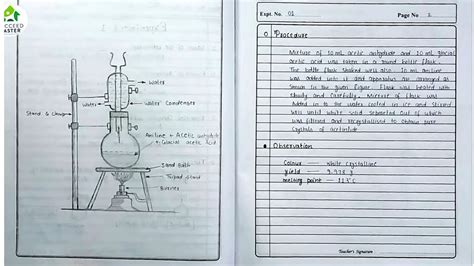 SUCCEED
MASTER
Water
Water
Water Condenser
Stand & Clamp
Aniline + Acetic anhydride
+ Glacial acetic acid
Sand Bath
Tripod Stand
Burner
Expt. No. 01
Page No 2
Procedure
Mixture of 10 mL acetic anhydride and 10 mL glacial
acetic acid was taken in a round bottle flask.
The bottle flask shaked well also 10 mL aniline
was added into it and apparatus are arranged as
shown in the given figure. Flask was heated with
steady and carefully. Mixture of flask was
added in to the water cooled in ice and stirred
well until white solid separated out of which
was filtered and recrystallised to obtain pure
crystals of
Observation
Colour — White crystalline
yield —
melting point —
Teacher's Signature